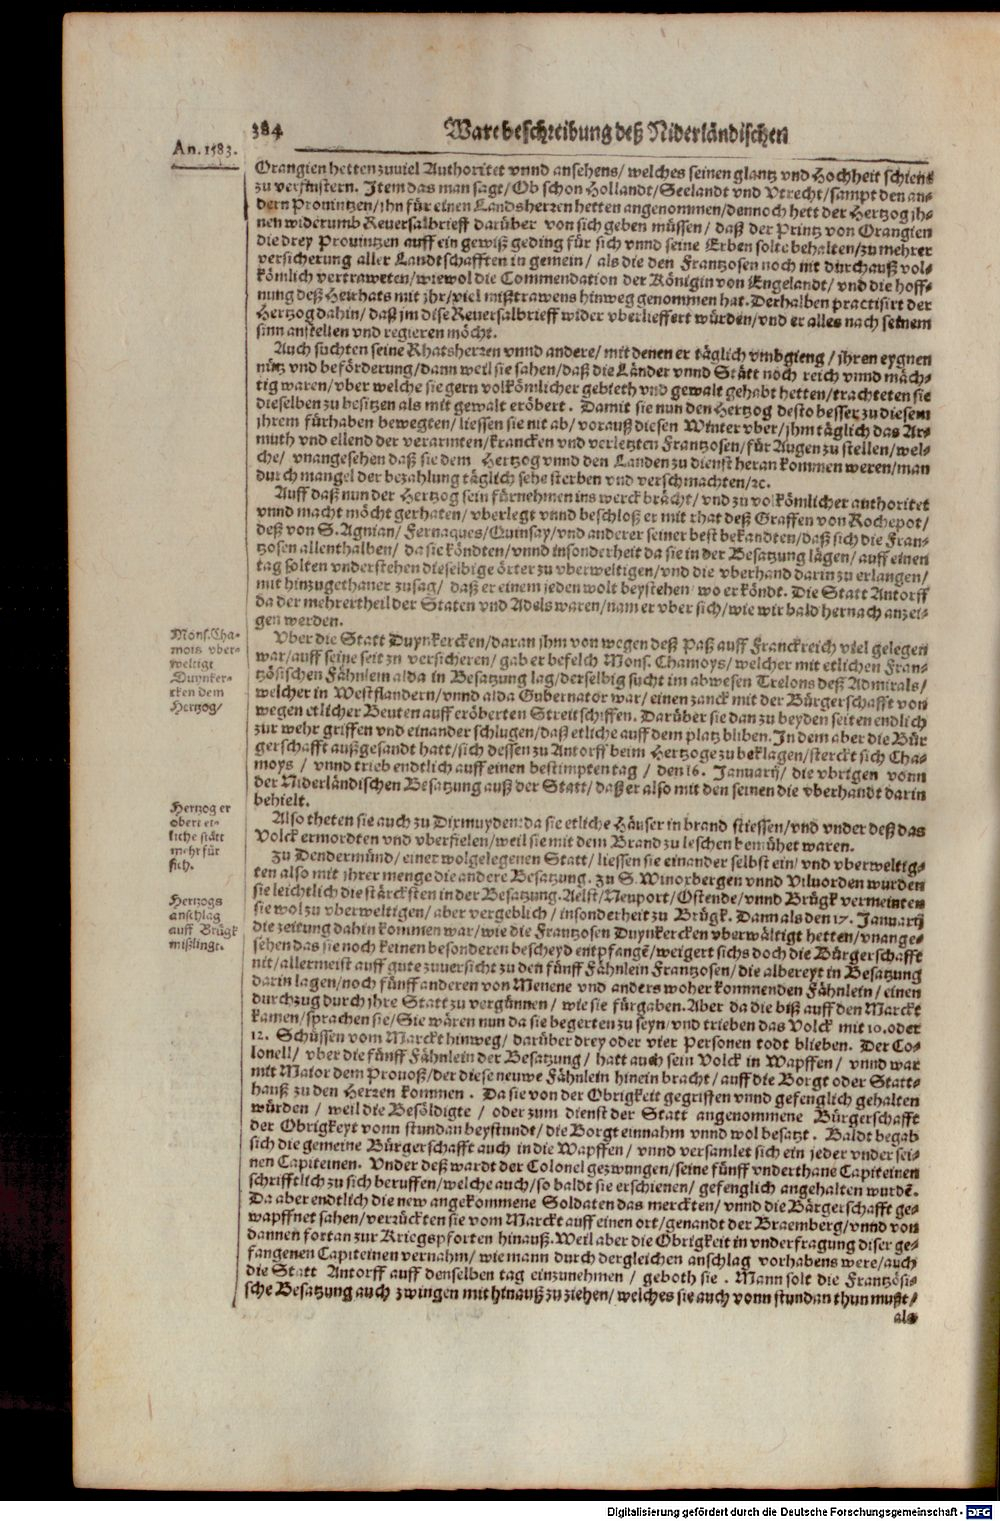 384 Ware beschreibung deß Niderländischen
An. 1583.
Orangien hetten zuuiel Authoritet vnnd ansehens/ welches seinen glantz vnd Hochheit schiens
zu verfinstern. Item das man sagt/ Ob schon Hollandt/ Seelandt vnd Vtrecht/ sampt den an-
dern Prouintzen/ jhn für einen Landsherren hetten angenommen/ dennoch hett der Hertzog jh-
nen widerumb Reuersalbrieff darüber von sich geben müssen/ daß der Printz von Orangien
die drey Prouintzen auff ein gewiß geding für sich vnnd seine Erben solte behalten/ zu mehrer
versicherung aller Landtschafften in gemein/ als die den Frantzosen noch nit durchauß vol-
kömlich vertraweten/ wiewol die Commendation der Königin von Engelandt/ vnd die hoff-
nung deß Heirhats mit jhr/ viel mißtrawens hinweg genommen hat. Derhalben practisirt der
Hertzog dahin/ daß jm dise Reuersalbrieff wider vberlieffert würden/ vnd er alles nach seinem
sinn anstellen vnd regieren möcht.
Auch suchten seine Rhatsherren vnnd andere/ mit denen er täglich vmbgieng/ jhren eygnen
nütz vnd beförderung/ dann weil sie sahen/ daß die Länder vnnd Stätt noch reich vnnd mäch-
tig waren/ vber welche sie gern volkömlicher gebieth vnd gewalt gehabt hetten/ trachteten sie
dieselben zu besitzen als mit gewalt eröbert. Damit sie nun den Hertzog desto besser zu diesem
jhrem fürhaben bewegten/ liessen sie nit ab/ vorauß diesen Winter vber/ jhm täglich das Ar-
muth vnd ellend der verarmten/ krancken vnd verletzten Frantzosen/ für Augen zu stellen/ wel-
che/ vnangesehen daß sie dem Hertzog vnnd den Landen zu dienst heran kommen weren/ man
durch mangel der bezahlung täglich sehe sterben vnd verschmachten/ ꝛc.
Auff daß nun der Hertzog sein fürnehmen ins werck brächt/ vnd zu volkömlicher authoritet
vnnd macht möcht gerhaten/ vberlegt vnnd beschloß er mit rhat deß Graffen von Rochepot/
deß von S. Agnian/ Fernaques/ Quinsay/ vnd anderer seiner best bekandten/ daß sich die Fran-
tzosen allenthalben/ da sie köndten/ vnnd insonderheit da sie in der Besatzung lägen/ auff einen
tag solten vnderstehen dieselbige örter zu vberweltigen/ vnd die vberhand darin zu erlangen/
mit hinzugethaner zusag/ daß er einem jeden wolt beystehen wo er köndt. Die Statt Antorff
da der mehrertheil der Staten vnd Adels waren/ nam er vber sich/ wie wir bald hernach anzei-
gen werden.
Mons. Cha-
mois vber-
weltigt
Duynker-
cken dem
Hertzog/
Vber die Statt Duynkercken/ daran jhm von wegen deß Paß auff Franckreich viel gelegen
war/ auff seine seit zu versicheren/ gab er befelch Mons. Chamoys/ welcher mit etlichen Fran-
tzösischen Fähnlein alda in Besatzung lag/ derselbig sucht im abwesen Trelons deß Admirals/
welcher in Westflandern/ vnnd alda Gubernator war/ einen zanck mit der Bürgerschafft von
wegen etlicher Beuten auff eröberten Streitschiffen. Darüber sie dan zu beyden seiten endlich
zur wehr griffen vnd einander schlugen/ daß etliche auff dem platz bliben. In dem aber die Bür
gerschafft außgesandt hatt/ sich dessen zu Antorff beim Hertzoge zu beklagen/ sterckt sich Cha-
moys/ vnnd trieb endtlich auff einen bestimpten tag/ den 16. Januarij/ die vbrigen vonn
der Niderländischen Besatzung auß der Statt/ daß er also mit den seinen die vberhandt darin
behielt.
Hertzog er
obert et-
liche stätt
mehr für
sich.
Also theten sie auch zu Dixmuyden: da sie etliche Häuser in brand stiessen/ vnd vnder deß das
Volck ermordten vnd vberfielen/ weil sie mit dem Brand zu leschen bemühet waren.
Zu Dendermünd/ einer wolgelegenen Statt/ liessen sie einander selbst ein/ vnd vberweltig-
ten also mit jhrer menge die andere Besatzung. Zu S. Winoxbergen vnnd Viluorden wurden
sie leichtlich die stärcksten in der Besatzung. Aelst/ Neuport/ Ostende/ vnnd Brügk vermeinten
sie wol zu vberweltigen/ aber vergeblich/ insonderheit zu Brügk. Dann als den 17. Januarij
Hertzogs
anschlag
auff Brügk
mißlingt.
die zeitung dahin kommen war/ wie die Frantzosen Duynkercken vberwältigt hetten/ vnange-
sehen das sie noch keinen besonderen bescheyd entpfangē/ weigert sichs doch die Bürgerschafft
nit/ allermeist auff gute zuuersicht zu den fünff Fähnlein Frantzosen/ die albereyt in Besatzung
darin lagen/ noch fünff anderen von Menene vnd anderswoher kommenden Fähnlein/ einen
durchzug durch jhre Statt zu vergünnen/ wie sie fürgaben. Aber da die biß auff den Marckt
kamen/ sprachen sie/ Sie wären nun da sie begerten zu seyn/ vnd trieben das Volck mit 10. oder
12. Schüssen vom Marckt hinweg/ darüber drey oder vier Personen todt blieben. Der Co-
lonell/ vber die fünff Fähnlein der Besatzung/ hatt auch sein Volck in Wapffen/ vnnd war
mit Maior dem Prouoß/ der diese neuwe Fähnlein hinein bracht/ auff die Borgt oder Statt-
hauß zu den Herren kommen. Da sie von der Obrigkeit gegriffen vnnd gefenglich gehalten
würden/ weil die Besöldigte/ oder zum dienst der Statt angenommene Bürgerschafft
der Obrigkeyt vonn stundan beystundt/ die Borgt einnahm vnnd wol besatzt. Baldt begab
sich die gemeine Bürgerschafft auch in die Wapffen/ vnnd versamlet sich ein jeder vnder sei-
nen Capiteinen. Vnder deß wardt der Colonel gezwungen/ seine fünff vnderthane Capiteinen
schrifftlich zu sich beruffen/ welche auch/ so baldt sie erschienen/ gefenglich angehalten wurdē.
Da aber endtlich die new angekommene Soldaten das merckten/ vnnd die Bürgerschafft ge-
wapffnet sahen/ verzückten sie vom Marckt auff einen ort/ genandt der Braemberg/ vnnd von
dannen fortan zur Kriegspforten hinauß. Weil aber die Obrigkeit in vnderfragung diser ge-
fangenen Capiteinen vernahm/ wie mann durch dergleichen anschlag vorhabens were/ auch
die Statt Antorff auff denselben tag einzunehmen/ geboth sie. Mann solt die Frantzösi-
sche Besatzung auch zwingen mit hinauß zu ziehen/ welches sie auch vonn stundan thun mußt/
als
Digitalisierung gefördert durch die Deutsche Forschungsgemeinschaft - DFG